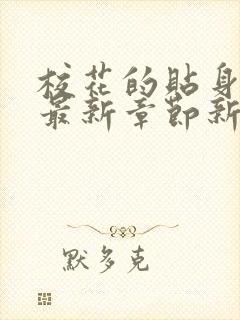 校花的贴身
最新章節新
默多克